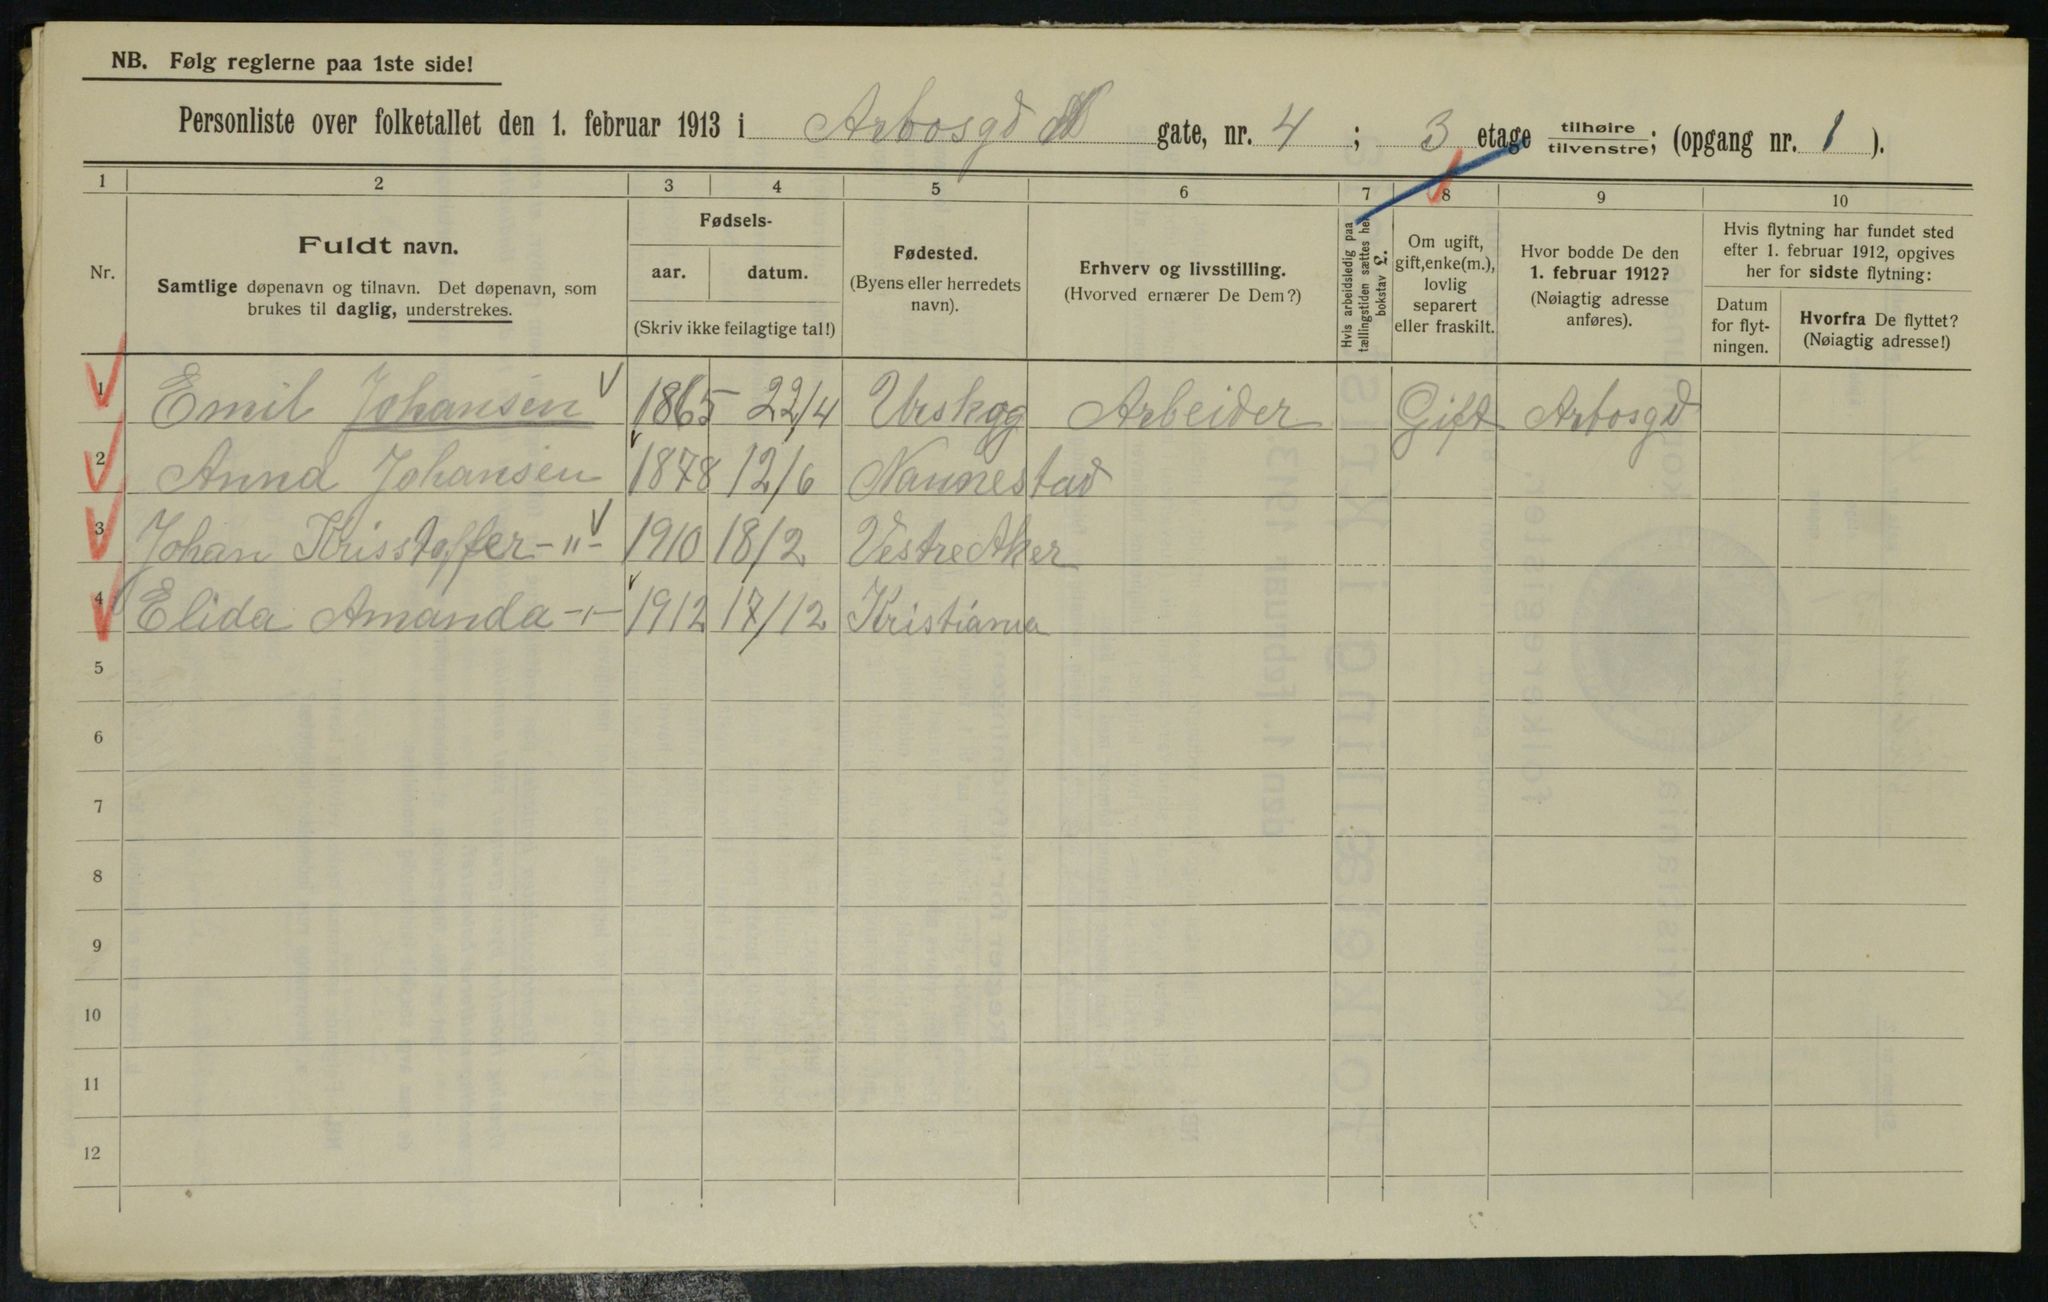 NB. Følg reglerne paa 1ste side!
Personliste over folketallet den 1. februar 1913 i Arbosgd gate, nr. 4 ; 3 etage tilhøire tilvenstre; (opgang nr. 1 ).
1 2 3 4 5 6 7 8 9 10
Nr.
Fuldt navn.
Samtlige døpenavn og tilnavn. Det døpenavn, som
brukes til daglig, understrekes.
Fødsels-
aar. datum.
(Skriv ikke feilagtige tal!)
Fødested.
(Byens eller herredets
navn).
Erhverv og livsstilling.
(Hvorved ernærer De Dem?)
Hvis arbeidsledig paa
tællingstiden sættes her
bokstav L.
Om ugift,
gift, enke(m.),
lovlig
separert
eller fraskilt.
Hvor bodde De den
1. februar 1912?
(Nøiagtig adresse
anføres).
Hvis flytning har fundet sted
efter 1. februar 1912, opgives
her for sidste flytning:
Datum
for flyt-
ningen.
Hvorfra De flyttet?
(Nøiagtig adresse!)
1 Emil Johansen 1865 22/4 Urskog Arbeider Gift Arbosgd
2 Anna Johansen 1878 12/6 Nannestad
3 Johan Krisstoffer -"- 1910 18/2 Vestre Aker
4 Elida Amanda -"- 1912 17/12 Kristiania
5
6
7
8
9
10
11
12